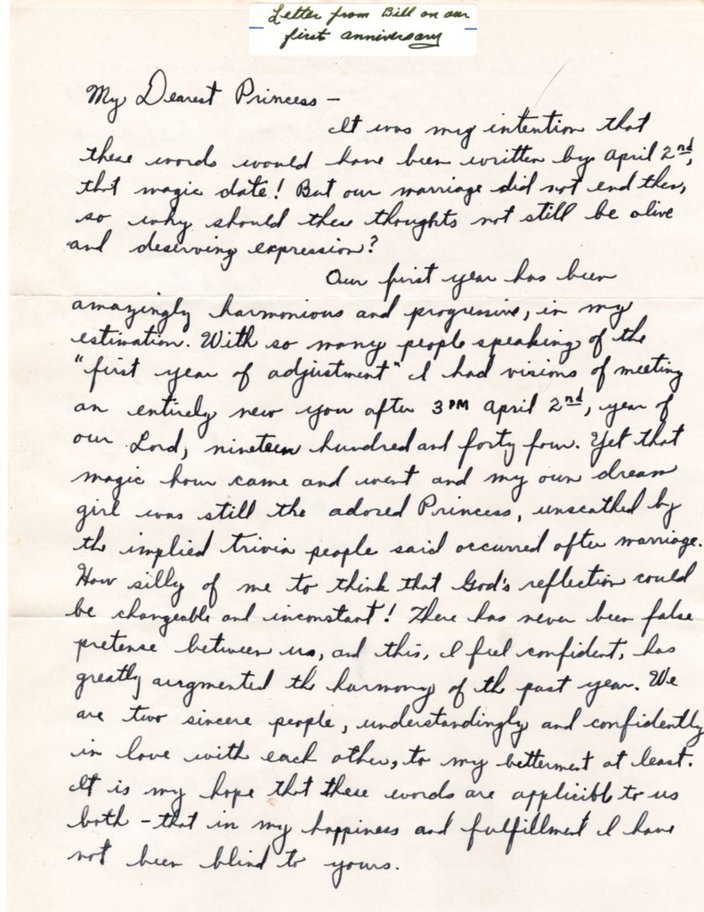 Letter from Bill on our
first anniversary
My Dearest Princess –
It was my intention that
these words would have been written by April 2nd,
that magic date! But our marriage did not end then,
so why should these thoughts not still be alive
and deserving expression?
Our first year has been
amazingly harmonious and progressive, in my
estimation. With so many people speaking of the
"first year of adjustment" I had visions of meeting
an entirely new you after 3 PM April 2nd, year of
our Lord, nineteen hundred and forty four. Yet that
magic hour came and went and my own dream
girl was still the adored Princess, unscathed by
the implied trivia people said occurred after marriage.
How silly of me to think that God's reflection could
be changeable and inconstant! There has never been false
pretense between us, and this, I feel confident, has
greatly augmented the harmony of the past year. We
are two sincere people, understandingly and confidently
in love with each other, to my betterment at least.
It is my hope that these words are applicible to us
both – that in my happiness and fulfillment I have
not been blind to yours.